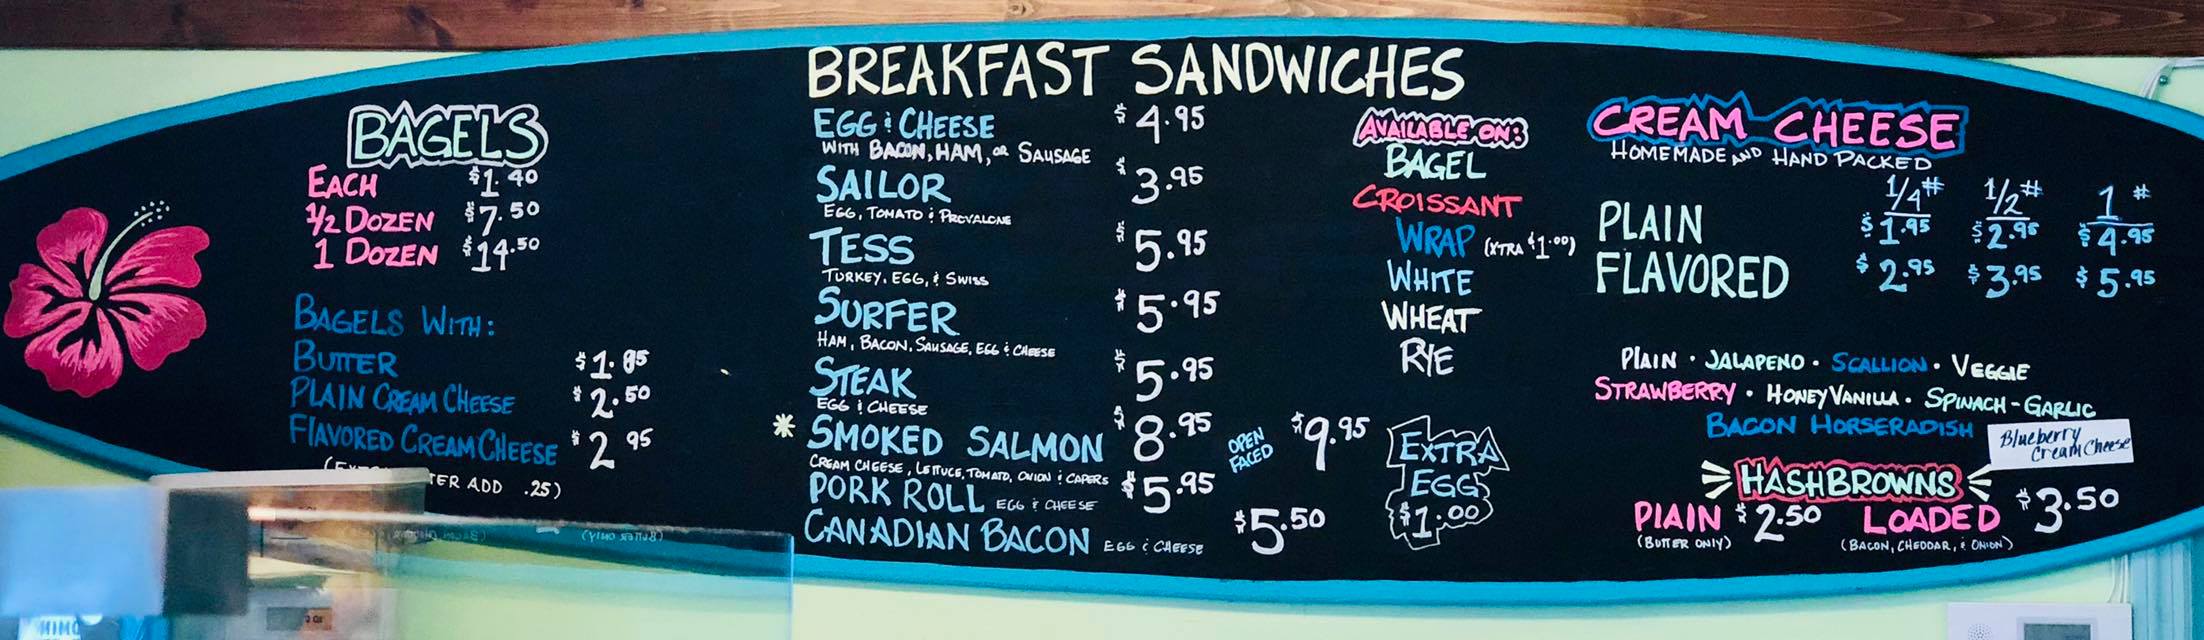 BREAKFAST SANDWICHES
BAGELS
EACH $1.40
1/2 DOZEN $7.50
1 DOZEN $14.50
BAGELS WITH:
BUTTER $1.85
PLAIN CREAM CHEESE $2.50
FLAVORED CREAM CHEESE $2.95
TER ADD .25)
EGG & CHEESE $4.95
WITH BACON, HAM, OR SAUSAGE
SAILOR $3.95
EGG, TOMATO & PROVALONE
TESS $5.95
TURKEY, EGG, & SWISS
SURFER $5.95
HAM, BACON, SAUSAGE, EGG & CHEESE
STEAK $5.95
EGG & CHEESE
* SMOKED SALMON $8.95 OPEN FACED $9.95
CREAM CHEESE, LETTUCE, TOMATO, ONION & CAPERS
PORK ROLL EGG & CHEESE $5.95
CANADIAN BACON EGG & CHEESE $5.50
AVAILABLE ON:
BAGEL
CROISSANT
WRAP (XTRA $1.00)
WHITE
WHEAT
RYE
EXTRA
EGG
$1.00
CREAM CHEESE
HOMEMADE AND HAND PACKED
1/4# 1/2# 1#
PLAIN $1.95 $2.95 $4.95
FLAVORED $2.95 $3.95 $5.95
PLAIN · JALAPENO · SCALLION · VEGGIE
STRAWBERRY · HONEY VANILLA · SPINACH-GARLIC
BACON HORSERADISH
Blueberry
Cream Cheese
HASHBROWNS
PLAIN $2.50 LOADED $3.50
(BUTTER ONLY) (BACON, CHEDDAR, & ONION)